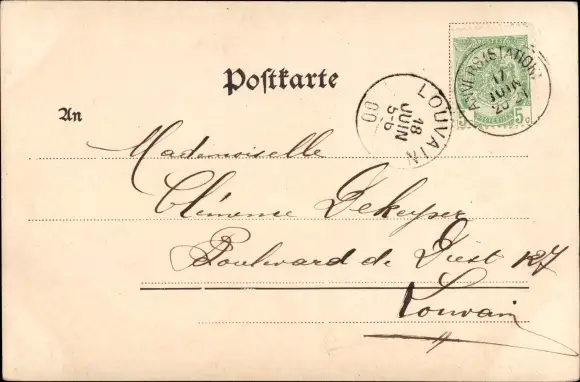 Postkarte
An
ANVERS (STATION)
17
JUIN
LOUVAIN
18
JUIN
5-6
00
5c
Mademoiselle
Clémence Dekeyser
Boulevard de Diest 127
Louvain